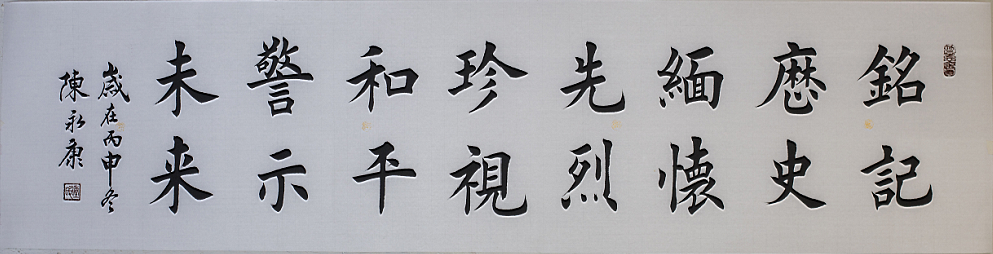 銘記
歷史
緬懷
先烈
珍視
和平
警示
未来
歲在丙申冬
陳永康